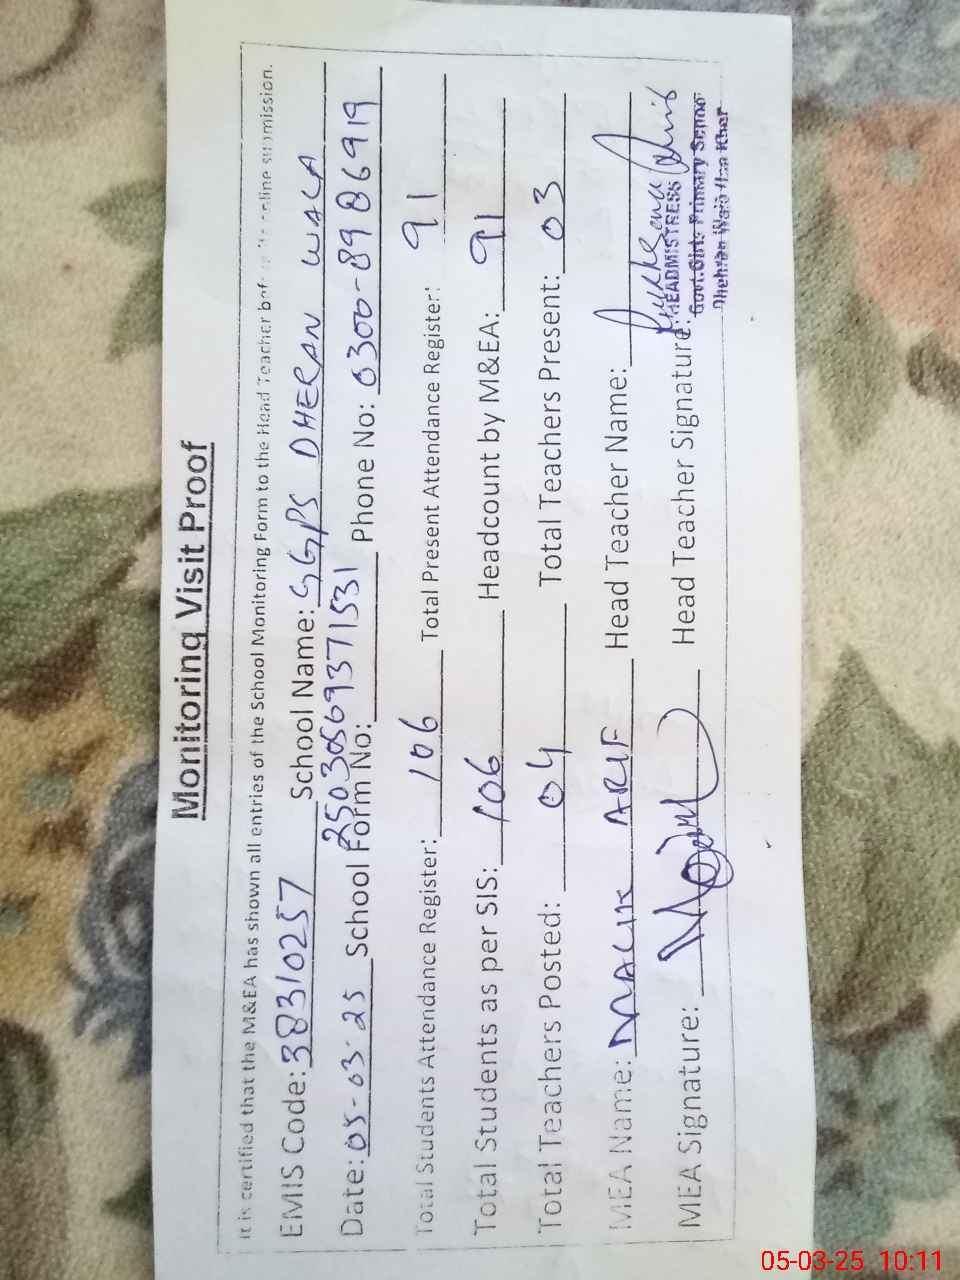 Monitoring Visit Proof
It is certified that the M&EA has shown all entries of the School Monitoring Form to the Head Teacher before online submission.
EMIS Code: 38310257 School Name: GGPS DHERAN WALA
Date: 05-03-25 School Form No: 2503056937 1531 Phone No: 0300-8986919
Total Students Attendance Register: 106 Total Present Attendance Register: 91
Total Students as per SIS: 106 Headcount by M&EA: 91
Total Teachers Posted: 04 Total Teachers Present: 03
MEA Name: MALIK ARIF Head Teacher Name:
MEA Signature: Head Teacher Signature:
HEADMISTRESS
Govt.Girls Primary Schoo
05-03-25 10:11